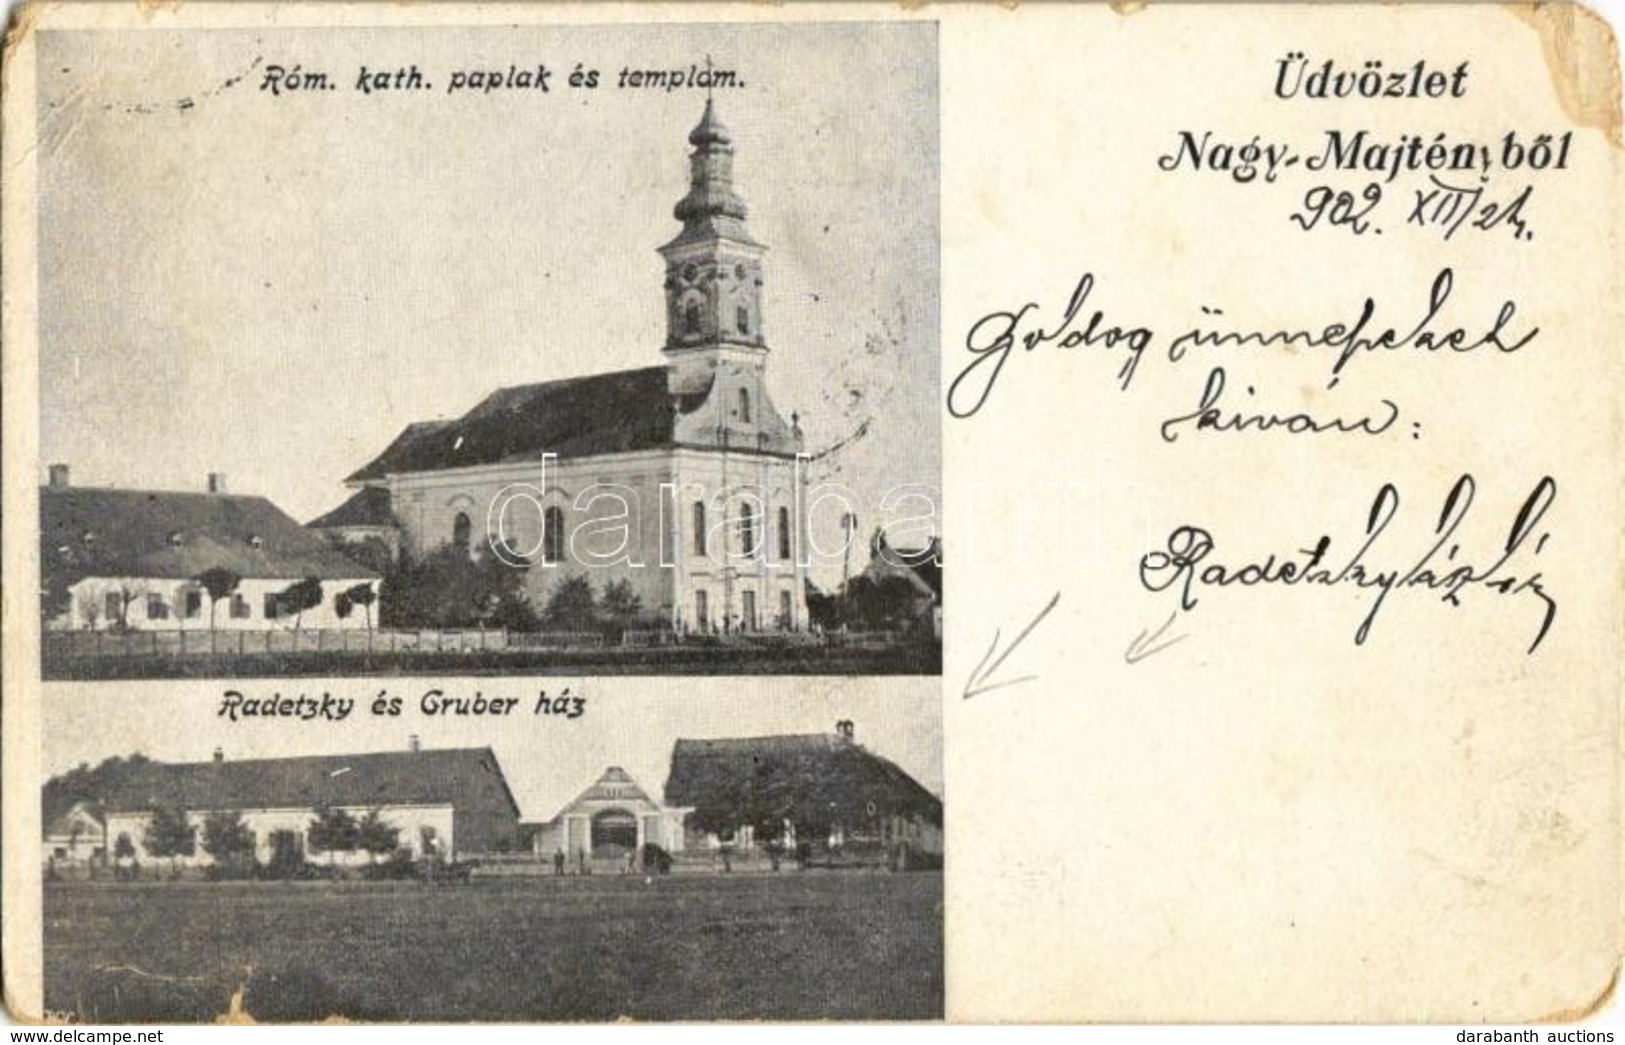 Róm. kath. paplak és templom.
Üdvözlet
Nagy-Majtényból
902. XII/24.
Goldog ünnepeket
kiván:
Radetzky László
Radetzky és Gruber ház
darabanth
Copyright (c) www.darabanth.com
darabanth auctions